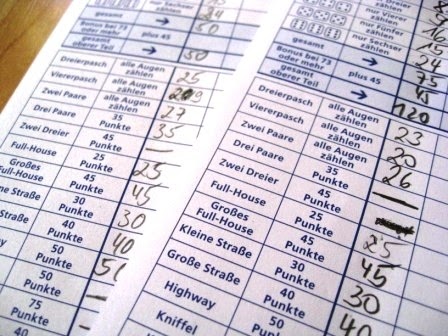 zählen
gesamt → 50
Bonus bei 73
oder mehr
gesamt
oberer Teil → 50
Dreierpasch alle Augen zählen 25
Viererpasch alle Augen zählen
Zwei Paare alle Augen zählen 27
Drei Paare 35 Punkte 35
Zwei Dreier 45 Punkte —
Full-House 25 Punkte 25
Großes Full-House 45 Punkte 45
Kleine Straße 30 Punkte 30
Straße 40 Punkte 40
50 Punkte
50 Punkte —
75 Punkte
nur Vierer zählen
nur Fünfer zählen 15
nur Sechser zählen 24
gesamt → 75
Bonus bei 73
oder mehr plus 45 45
gesamt
oberer Teil → 120
Dreierpasch alle Augen zählen 23
Viererpasch alle Augen zählen 20
Zwei Paare alle Augen zählen 26
Drei Paare 35 Punkte —
Zwei Dreier 45 Punkte
Full-House 25 Punkte 25
Großes Full-House 45 Punkte 45
Kleine Straße 30 Punkte 30
Große Straße 40 Punkte 40
Highway
Kniffel